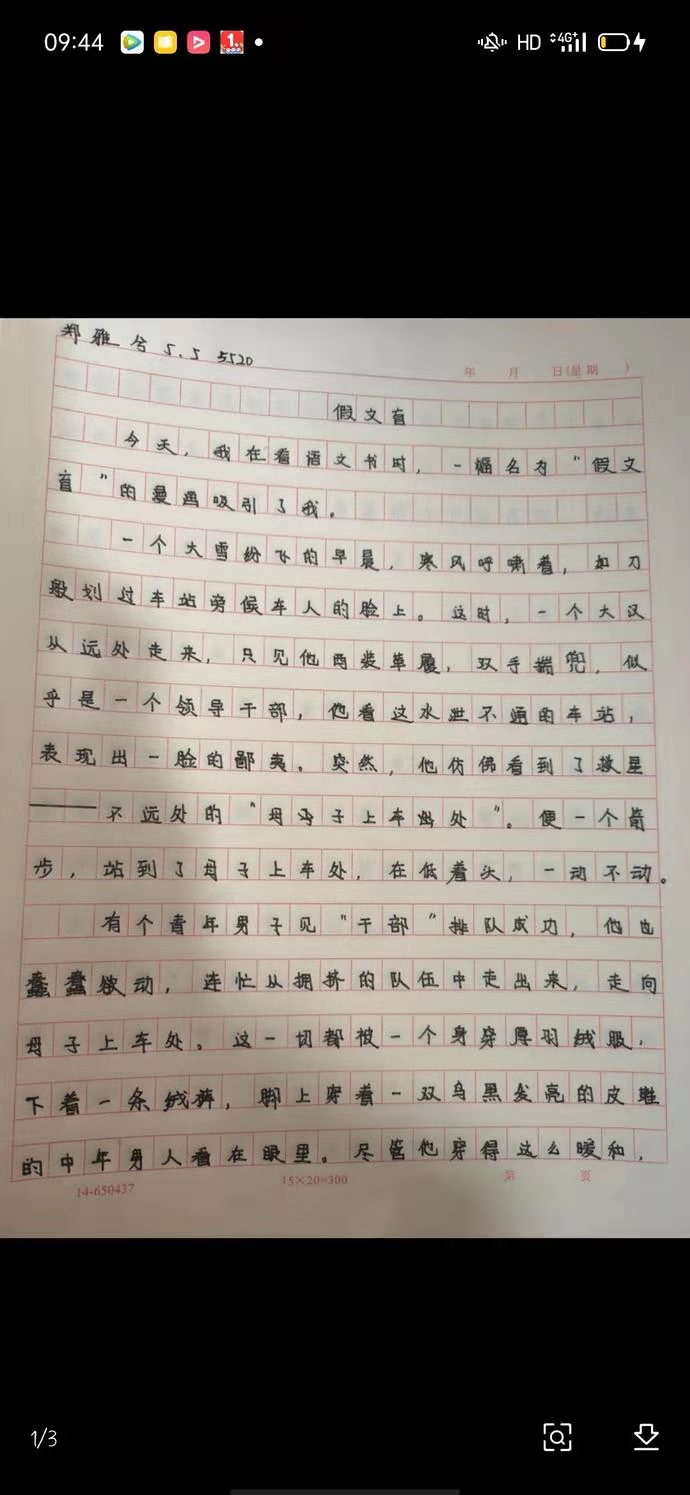 09:44
HD 4G+
郑雅兮 5.5 5520
年 月 日(星期 )
假文盲
今天，我在看语文书时，一幅名为“假文
盲”的漫画吸引了我。
一个大雪纷飞的早晨，寒风呼啸着，如刀
般划过车站旁候车人的脸上。这时，一个大汉
从远处走来，只见他西装革履，双手揣兜，似
乎是一个领导干部，他看这水泄不通的车站，
表现出一脸的鄙夷。突然，他仿佛看到了救星
——不远处的“母子上车处”。便一个箭
步，站到了母子上车处，在低着头，一动不动。
有个青年男子见“干部”排队成功，他也
蠢蠢欲动，连忙从拥挤的队伍中走出来，走向
母子上车处。这一切都被一个身穿厚羽绒服，
下着一条绒裤，脚上穿着一双乌黑发亮的皮鞋
的中年男人看在眼里。尽管他穿得这么暖和，
14-650437
15×20=300
第 页
1/3